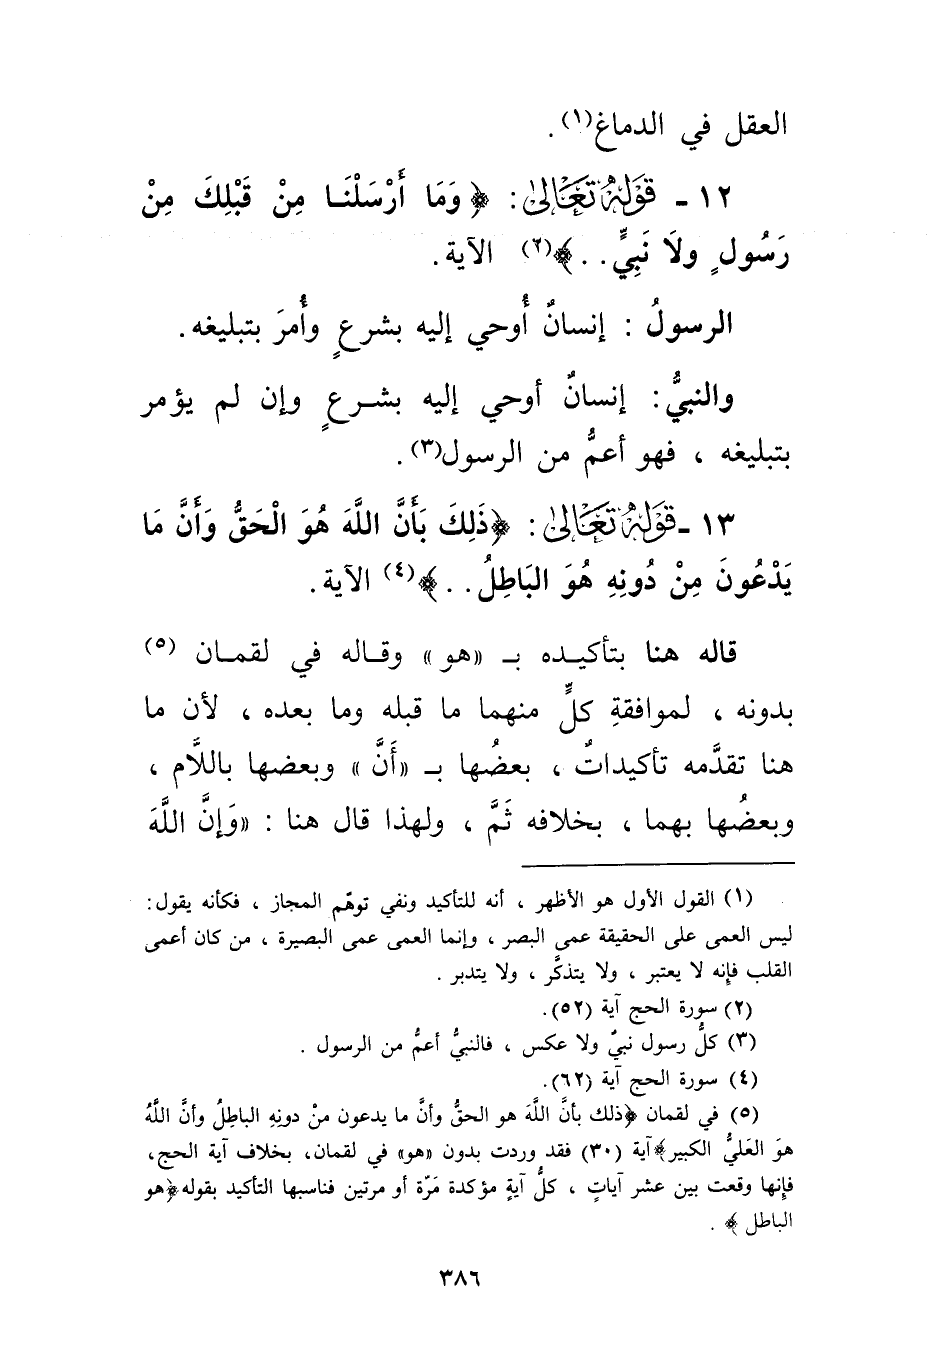 العقل في الدماغ(١) .
١٢ ـ قَوْلُهُ تَعَالَىٰ : ﴿ وَمَا أَرْسَلْنَـا مِنْ قَبْلِكَ مِنْ
رَسُولٍ ولَا نَبِيٍّ . . ﴾(٢) الآية .
الرسولُ : إنسانٌ أُوحي إليه بشرعٍ وأُمرَ بتبليغه .
والنبيُّ : إنسانٌ أوحي إليه بشـرعٍ وإن لم يؤمر
بتبليغه ، فهو أعمُّ من الرسول(٣) .
١٣ ـ قَوْلُهُ تَعَالَىٰ : ﴿ذَلِكَ بَأَنَّ اللَّهَ هُوَ الْحَقُّ وَأَنَّ مَا
يَدْعُونَ مِنْ دُونِهِ هُوَ البَاطِلُ . . ﴾(٤) الآية .
قاله هنا بتأكيـده بـ «هو» وقـاله في لقمـان (٥)
بدونه ، لموافقةِ كلٍّ منهما ما قبله وما بعده ، لأن ما
هنا تقدَّمه تأكيداتٌ ، بعضُها بـ «أَنَّ » وبعضها باللَّام ،
وبعضُها بهما ، بخلافه ثَمَّ ، ولهذا قال هنا : «وَإنَّ اللَّهَ
(١) القول الأول هو الأظهر ، أنه للتأكيد ونفي توهّم المجاز ، فكأنه يقول :
ليس العمى على الحقيقة عمى البصر ، وإنما العمى عمى البصيرة ، من كان أعمى
القلب فإنه لا يعتبر ، ولا يتذكَّر ، ولا يتدبر .
(٢) سورة الحج آية (٥٢) .
(٣) كلُّ رسول نبيٌ ولا عكس ، فالنبيُّ أعمُّ من الرسول .
(٤) سورة الحج آية (٦٢) .
(٥) في لقمان ﴿ذلك بأنَّ اللَّهَ هو الحقُّ وأنَّ ما يدعون منْ دونِهِ الباطِلُ وأنَّ اللَّهُ
هوَ العَليُّ الكبير﴾آية (٣٠) فقد وردت بدون «هو» في لقمان، بخلاف آية الحج،
فإنها وقعت بين عشر آياتٍ ، كلُّ آيةٍ مؤكدة مَرّة أو مرتين فناسبها التأكيد بقوله ﴿هو
الباطل ﴾ .
٣٨٦